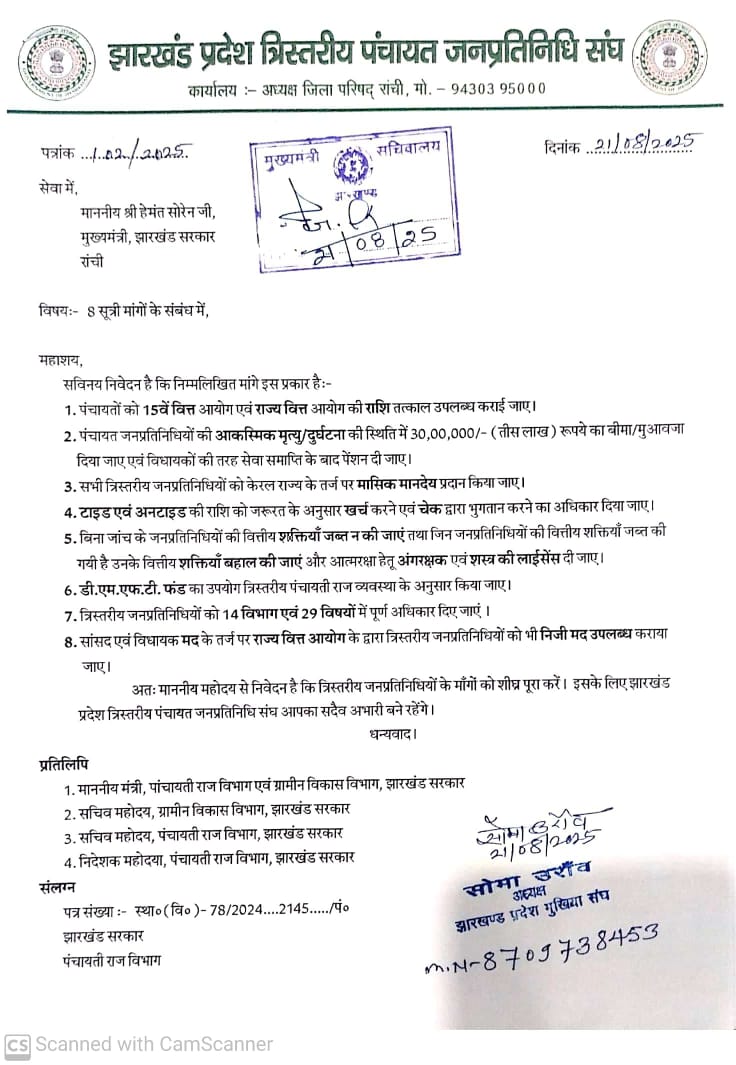 झारखंड प्रदेश त्रिस्तरीय पंचायत जनप्रतिनिधि संघ
कार्यालय :– अध्यक्ष जिला परिषद् रांची, मो. – 94303 95000
पत्रांक .../.02../.2025.
दिनांक ..21/08/2025
मुख्यमंत्री सचिवालय
झारखण्ड
21/08/25
सेवा में,
माननीय श्री हेमंत सोरेन जी,
मुख्यमंत्री, झारखंड सरकार
रांची
विषयः- 8 सूत्री मांगों के संबंध में,
महाशय,
सविनय निवेदन है कि निम्मलिखित मांगे इस प्रकार हैः-
1. पंचायतों को 15वें वित्त आयोग एवं राज्य वित्त आयोग की राशि तत्काल उपलब्ध कराई जाए।
2. पंचायत जनप्रतिनिधियों की आकस्मिक मृत्यु/दुर्घटना की स्थिति में 30,00,000/- ( तीस लाख ) रूपये का बीमा/मुआवजा
दिया जाए एवं विधायकों की तरह सेवा समाप्ति के बाद पेंशन दी जाए।
3. सभी त्रिस्तरीय जनप्रतिनिधियों को केरल राज्य के तर्ज पर मासिक मानदेय प्रदान किया जाए।
4. टाइड एवं अनटाइड की राशि को जरूरत के अनुसार खर्च करने एवं चेक द्वारा भुगतान करने का अधिकार दिया जाए।
5. बिना जांच के जनप्रतिनिधियों की वित्तीय शक्तियाँ जब्त न की जाएं तथा जिन जनप्रतिनिधियों की वित्तीय शक्तियाँ जब्त की
गयी है उनके वित्तीय शक्तियाँ बहाल की जाएं और आत्मरक्षा हेतू अंगरक्षक एवं शस्त्र की लाईसेंस दी जाए।
6. डी.एम.एफ.टी. फंड का उपयोग त्रिस्तरीय पंचायती राज व्यवस्था के अनुसार किया जाए।
7. त्रिस्तरीय जनप्रतिनिधियों को 14 विभाग एवं 29 विषयों में पूर्ण अधिकार दिए जाएं ।
8. सांसद एवं विधायक मद के तर्ज पर राज्य वित्त आयोग के द्वारा त्रिस्तरीय जनप्रतिनिधियों को भी निजी मद उपलब्ध कराया
जाए।
अतः माननीय महोदय से निवेदन है कि त्रिस्तरीय जनप्रतिनिधियों के माँगों को शीघ्र पूरा करें। इसके लिए झारखंड
प्रदेश त्रिस्तरीय पंचायत जनप्रतिनिधि संघ आपका सदैव अभारी बने रहेंगे।
धन्यवाद।
प्रतिलिपि
1. माननीय मंत्री, पांचायती राज विभाग एवं ग्रामीन विकास विभाग, झारखंड सरकार
2. सचिव महोदय, ग्रामीन विकास विभाग, झारखंड सरकार
3. सचिव महोदय, पंचायती राज विभाग, झारखंड सरकार
4. निदेशक महोदया, पंचायती राज विभाग, झारखंड सरकार
सोमा उराँव
21/08/2025
सोमा उराँव
अध्यक्ष
झारखण्ड प्रदेश मुखिया संघ
m.N-8709738453
संलग्न
पत्र संख्या :- स्था०(वि०)- 78/2024....2145...../पं०
झारखंड सरकार
पंचायती राज विभाग
CS Scanned with CamScanner